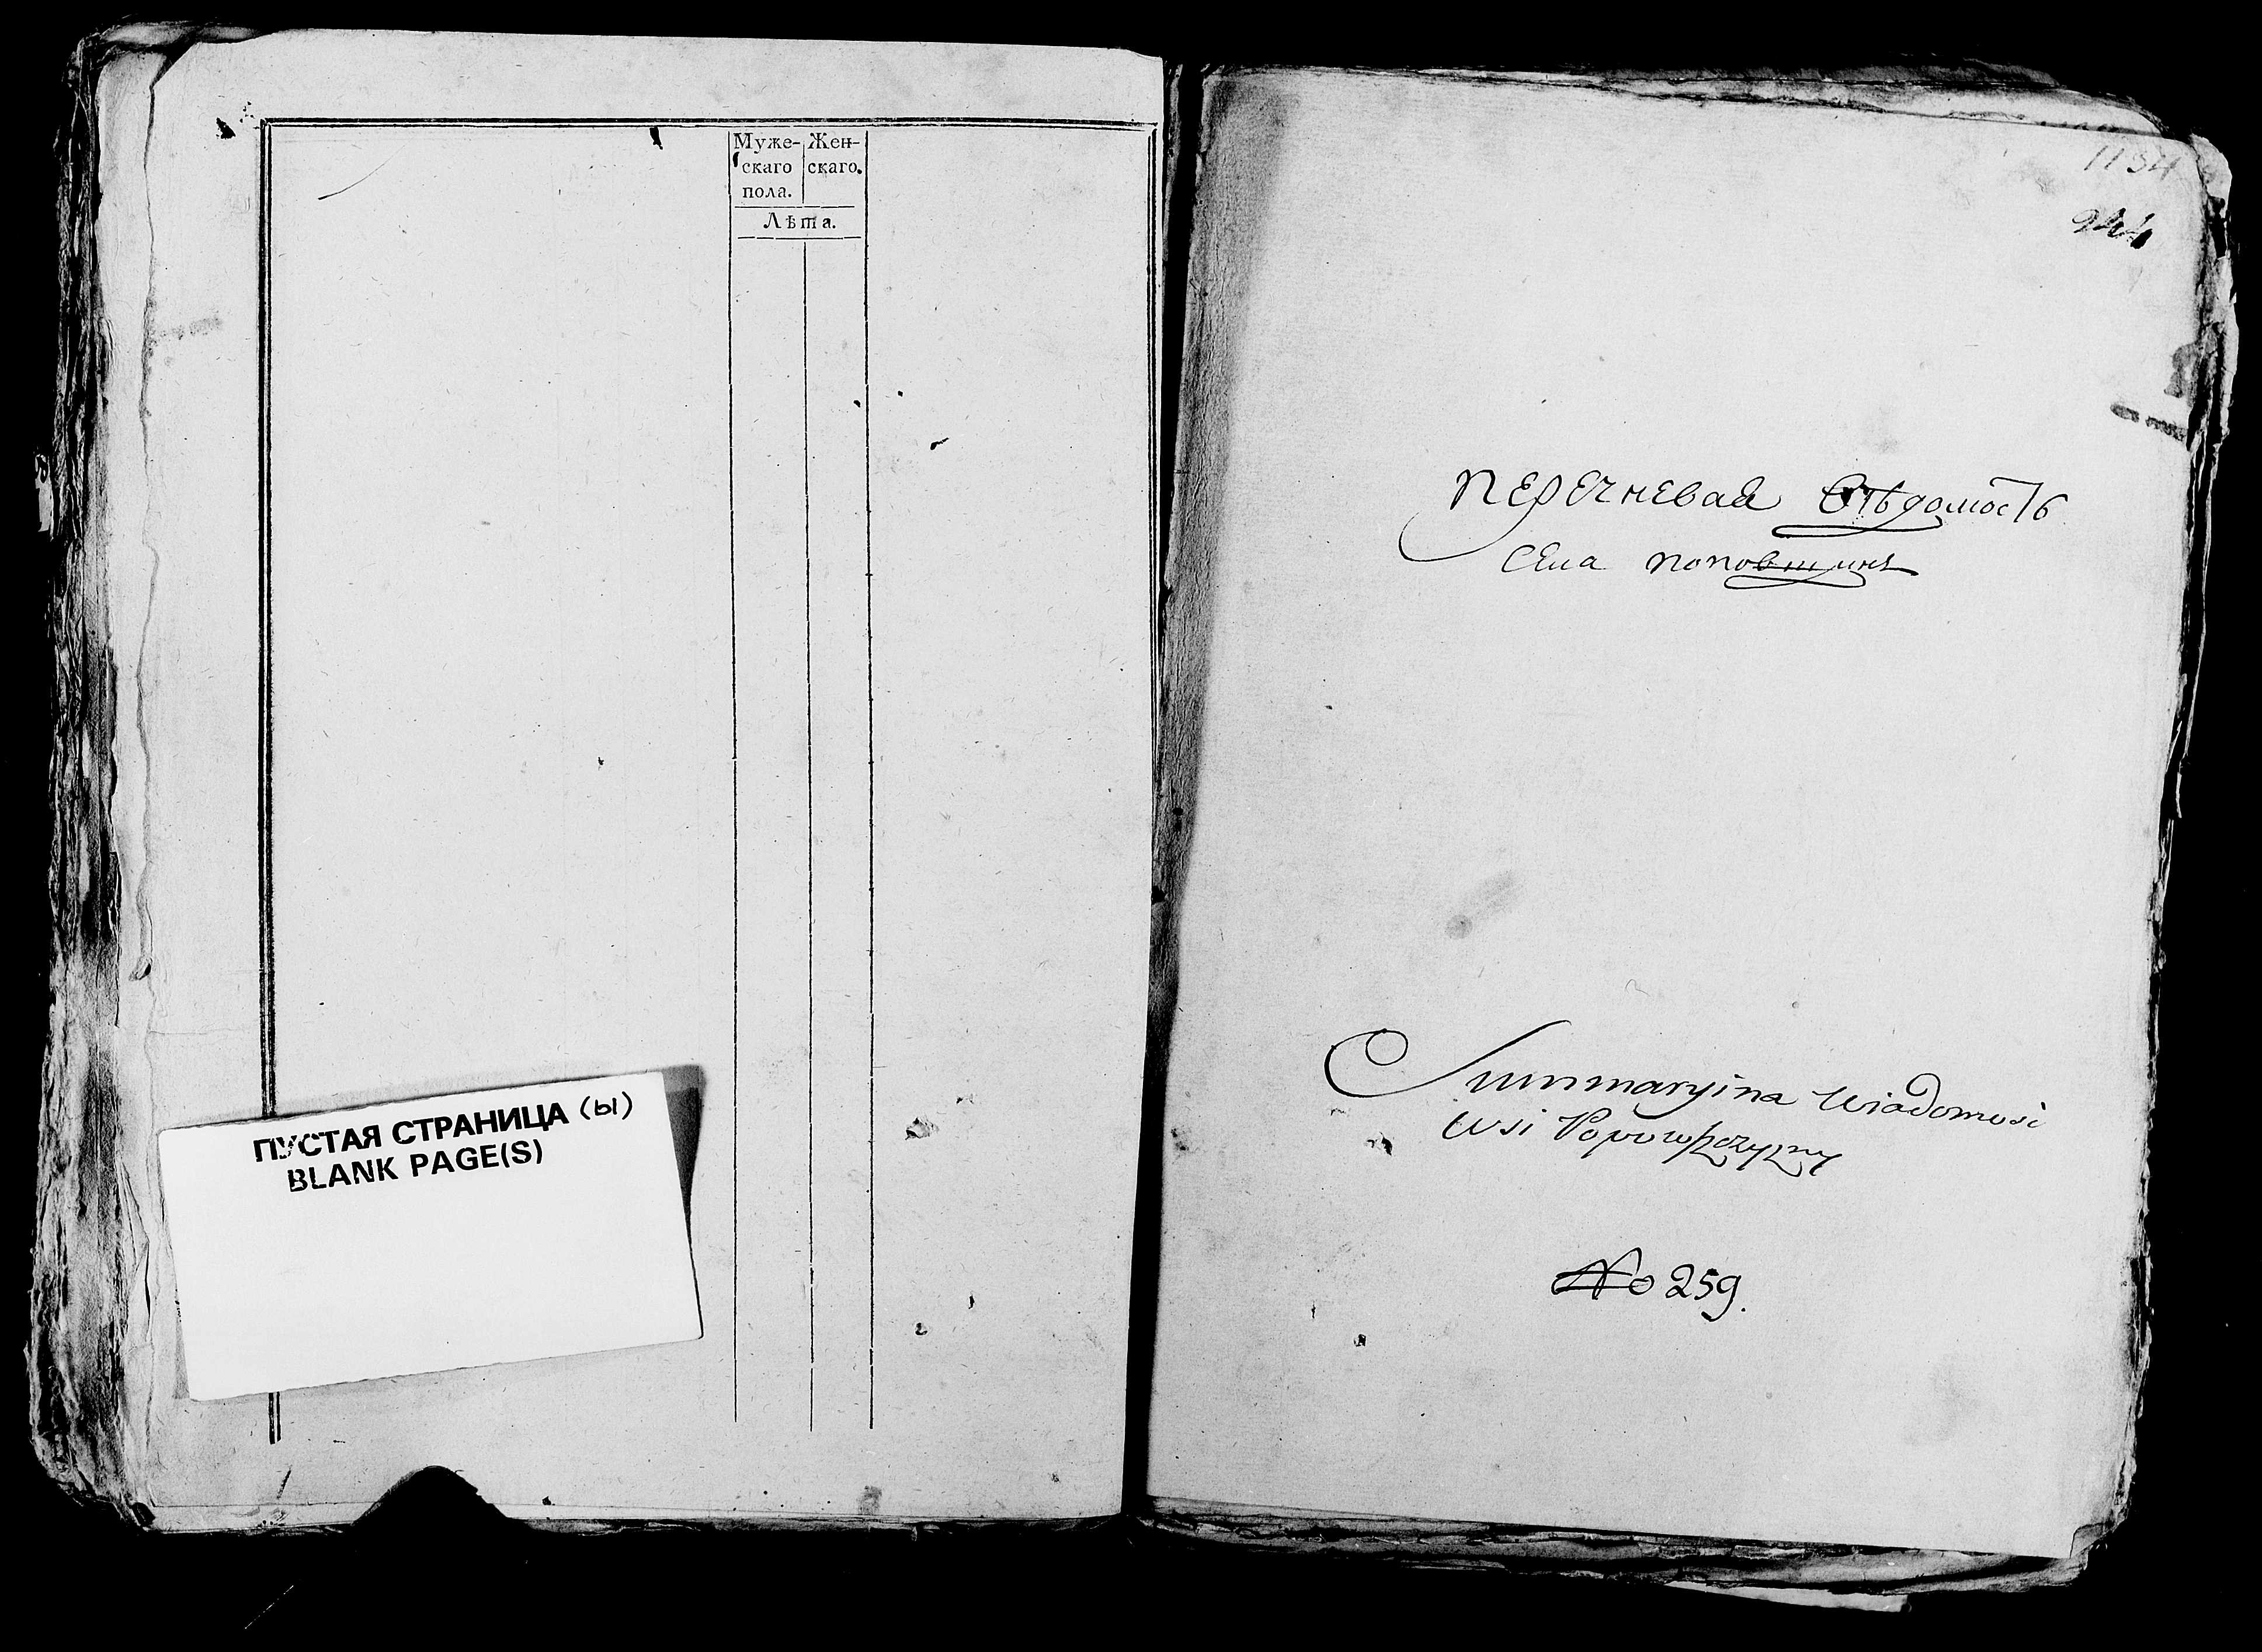 Муже-
скаго
пола.
Жен-
скаго.
Лѣта.
ПУСТАЯ СТРАНИЦА (ы)
BLANK PAGE(S)
1154
944
Перечневая Вѣдомость
Села Поповщины
Summaryina Wiadomość
Wsi Popowszczyzny
No 259.